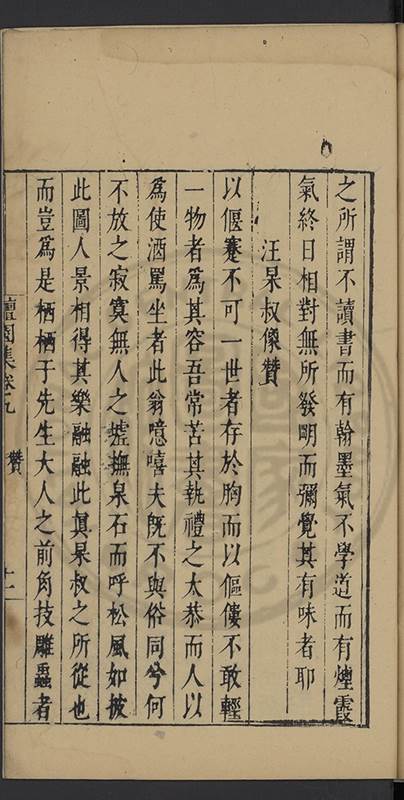 之所謂不讀書而有翰墨氣不學道而有煙霞
氣終日相對無所發明而彌覺其有味者耶
汪杲叔像贊
以偃蹇不可一世者存於胸而以傴僂不敢輕
一物者為其容吾常苦其執禮之太恭而人以
為使酒罵坐者此翁噫嘻夫旣不與俗同兮何
不放之寂寞無人之墟撫泉石而呼松風如披
此圖人景相得其樂融融此眞杲叔之所從也
而豈為是栖栖于先生大人之前角技雕蟲者
檀園集卷九
贊
十一